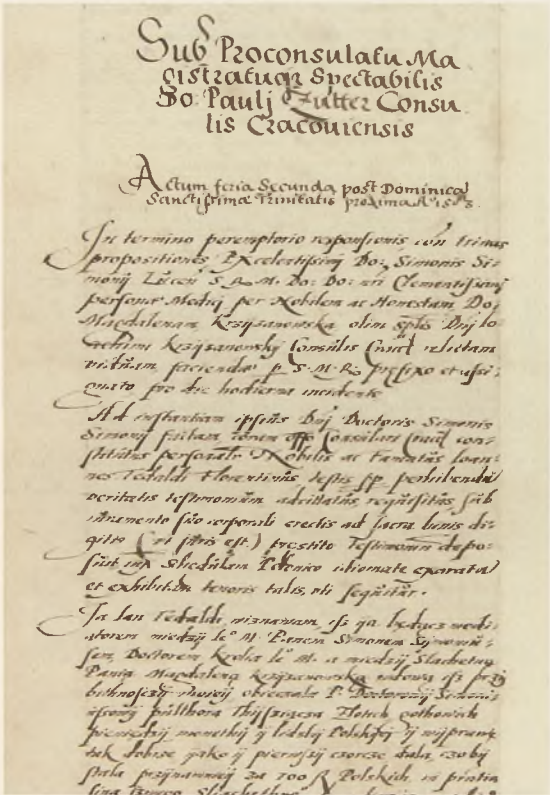 Sub Proconsulatu Ma
gistratuq; Spectabilis
Do: Pauli Zutter Consu
lis Cracouiensis
Actum feria Secunda post Dominicā
Sanctissimæ Trinitatis proxima
In termino peremptorio responsionis con trinas
propositiones Excelentissimj Do: Simonis Si-
monij Lucen S. R. M. Do: Do: nri Clementissimj
personæ Medicj per Nobilem ac Honestam Do:
Magdalenam Krzyzanowska olim Dnj Io
Krzyzanowskj Consulis relictam
viduam, faciendæ S. M. R. præfixo et assi-
gnato pro die hodierna incidente
Ad instantiam ipsius Dnj Doctoris Simonis
Simonij factam, Consulari con-
stitutus personalr Nobilis ac Famatus Ioan-
nes Tedaldi Florentinus, testis perhibendū
veritatis testimonium adcitatus, requisitus sub
iuramento suo corporali erectis ad sacra binis di-
gitis (vt juris est) prestito Testimonium depo-
suit Schedulam idiomate exaratā
et exhibitam tenoris talis, vti sequitur.
Ja Jan Tedaldi, wiznawam, isz ya będącz medi-
atorem miedzij Ie° M. Panem Simonem Simoniu-
sem, Doctorem Krolia Ie° M. a miedzij Slachetną
Panią Magdaleną Krzyzanowską wdową isz przy
bithnosczij moiey obieczala P. Doctorowij Simoni-
usowij pulthora Thijssiącza Zlotich gothowich
pieniedzij monethij ij lidzbij Polskiey ij wijprawę
tak dobrze jako ij pierwszij czorcze dala, czo bij
stala przijnamniej za 700 Polskich,